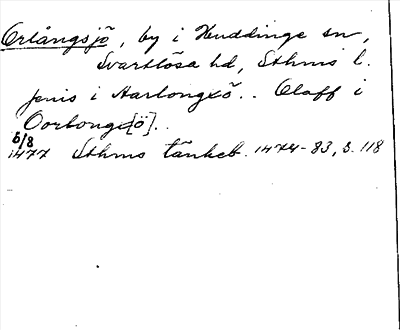 Orlångsjö, by i Huddinge sn,
Svartlösa hd, Sthms l.
Jenis i Aarlongxö.. Olaff i
Oorlongx[ö]..
5/8
1477 Sthms tänkeb. 1474-83, s. 118